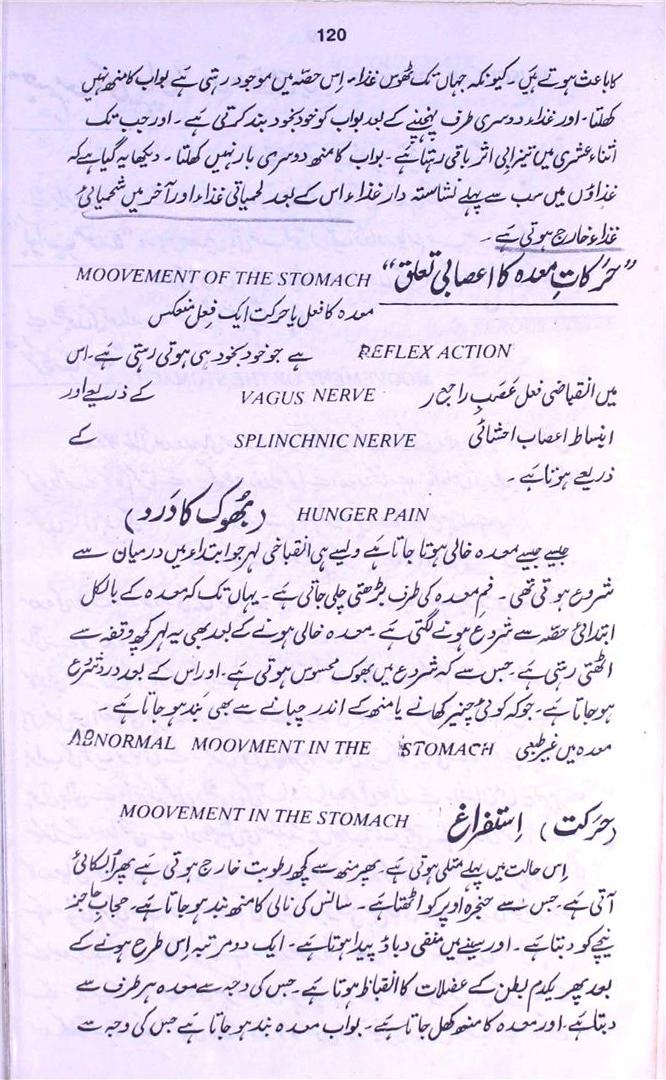 120
کا باعث ہوتے ہیں۔ کیونکہ جہاں تک ٹھوس غذاء اِس حصّہ میں موجود رہتی ہے بواب کا منھ نہیں
کھلتا۔ اور غذاء دوسری طرف پہنچنے کے بعد بواب کو خود بخود بند کرتی ہے۔ اور جب تک
اثناء عشری میں تیزابی اثر باقی رہتا ہے۔ بواب کا منھ دوسری بار نہیں کھلتا۔ دیکھا یہ گیا ہے کہ
غذاؤں میں سب سے پہلے نشاستہ دار غذاء اس کے بعد لحمیاتی غذاء اور آخر میں شحمیائی
غذاء خارج ہوتی ہے۔
”حرکاتِ معدہ کا اعصابی تعلق“ MOOVEMENT OF THE STOMACH
معدہ کا فعل یا حرکت ایک فِعل منعکس
REFLEX ACTION ہے جو خود بخود ہی ہوتی رہتی ہے۔ اس
میں انقباضی فعل عَصَبِ راجع VAGUS NERVE کے ذریعے اور
انبساط اعصاب احشائی SPLINCHNIC NERVE کے
ذریعے ہوتا ہے۔
HUNGER PAIN (بھُوک کا دَرد)
جیسے جیسے معدہ خالی ہوتا جاتا ہے ویسے ہی انقباضی لہر جو ابتداء میں درمیان سے
شروع ہوتی تھی۔ فم معدہ کی طرف بڑھتی چلی جاتی ہے۔ یہاں تک کہ معدہ کے بالکل
ابتدائی حصّہ سے شروع ہونے لگتی ہے۔ معدہ خالی ہونے کے بعد بھی یہ لہر کچھ وقفہ سے
اٹھتی رہتی ہے۔ جس سے کہ شروع میں بھوک محسوس ہوتی ہے۔ اور اس کے بعد درد شروع
ہو جاتا ہے۔ جو کہ کوئی چیز کھانے یا منھ کے اندر چبانے سے بھی بند ہو جاتا ہے۔
معدہ میں غیر طبعی ABNORMAL MOOVMENT IN THE STOMACH
(حَرکت) اِستفراغ MOOVEMENT IN THE STOMACH
اِس حالت میں پہلے متلی ہوتی ہے۔ پھر منھ سے کچھ رطوبت خارج ہوتی ہے پھر اُبکائی
آتی ہے۔ جس سے حنجرہ اوپر کو اٹھتا ہے۔ سانس کی نالی کا منھ بند ہو جاتا ہے۔ حجاب حاجز
نیچے کو دبتا ہے۔ اور سینے میں منفی دباؤ پیدا ہوتا ہے۔ ایک دو مرتبہ اِس طرح ہونے کے
بعد پھر یکدم بطن کے عضلات کا انقباظ ہوتا ہے۔ جس کی وجہ سے معدہ ہر طرف سے
دبتا ہے۔ اور معدہ کا منھ کھل جاتا ہے۔ بواب معدہ بند ہو جاتا ہے جس کی وجہ سے